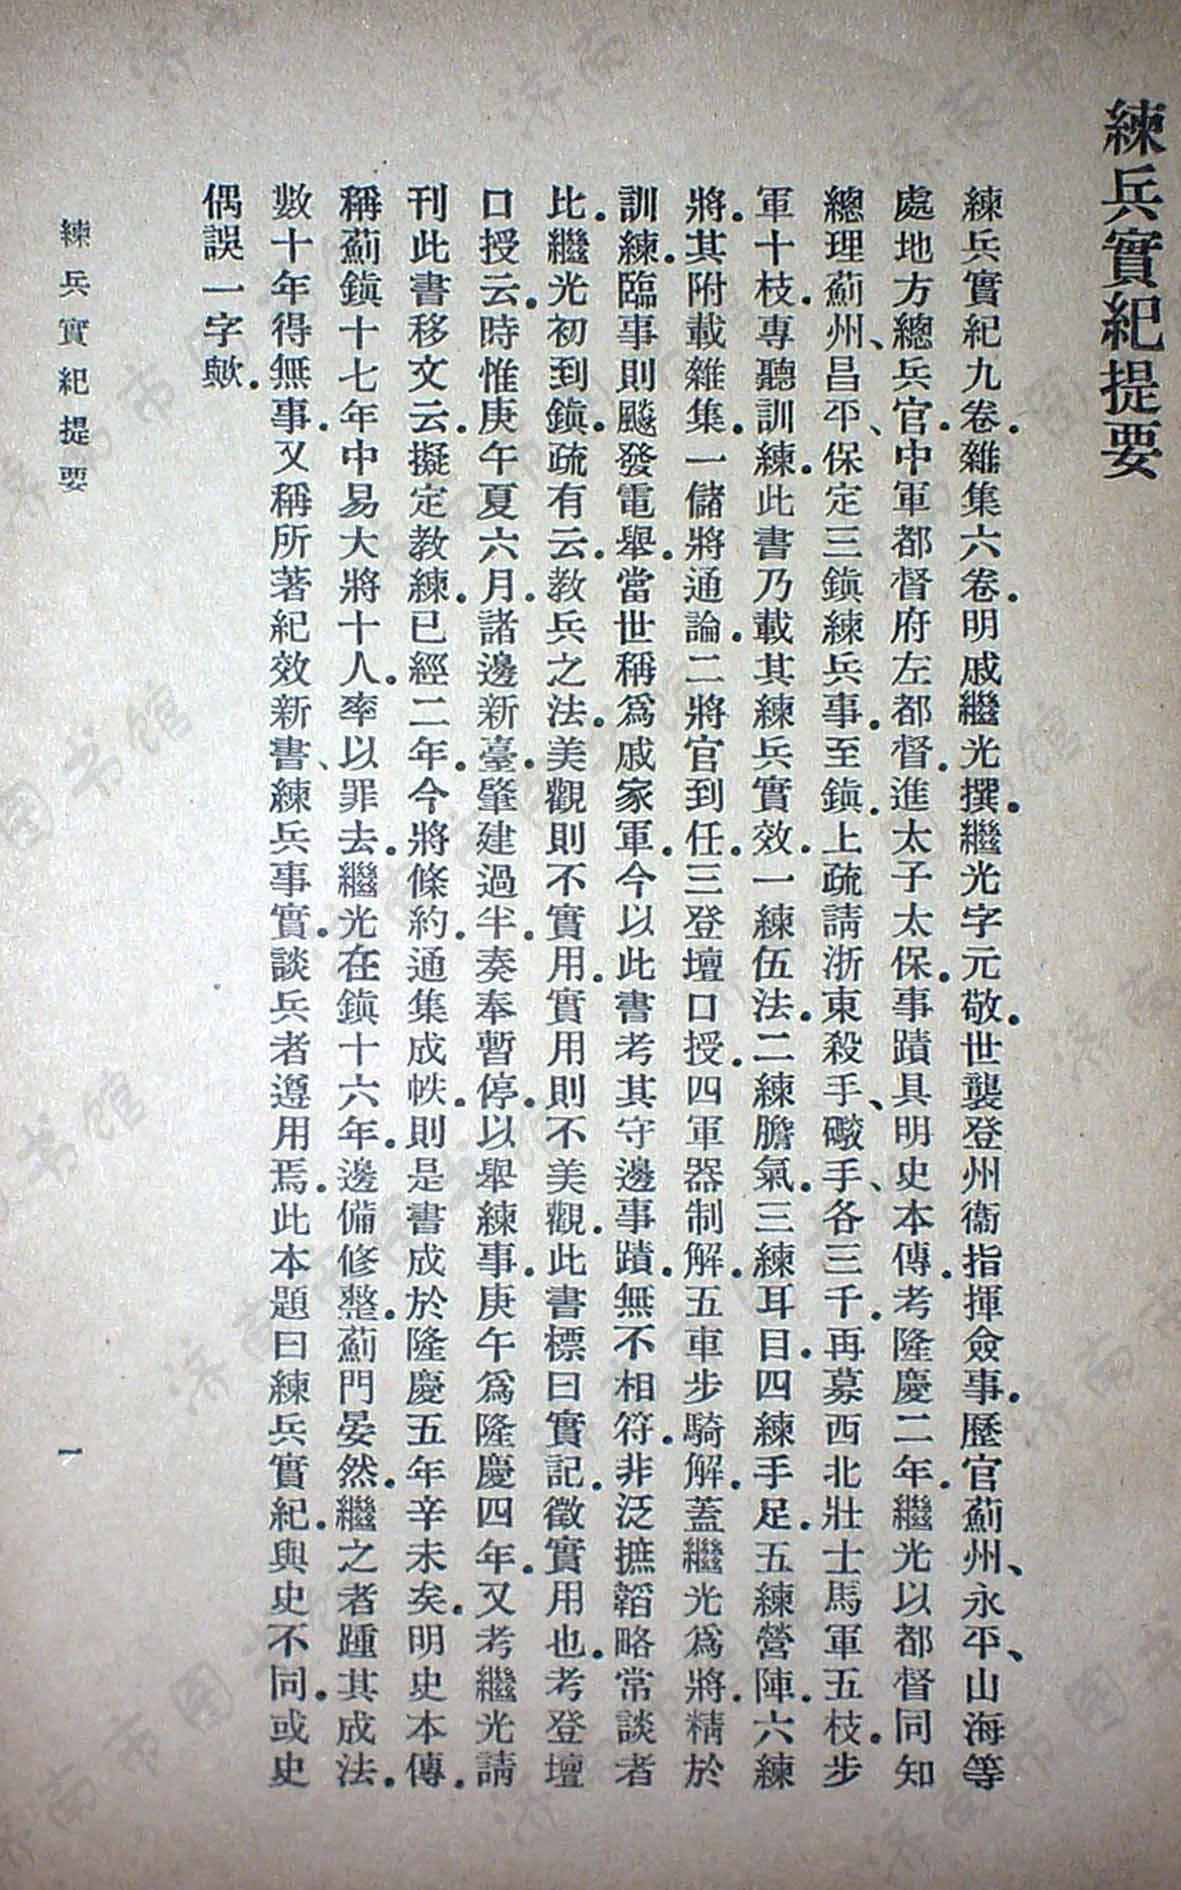 練兵實紀提要
練兵實紀九卷.雜集六卷.明戚繼光撰.繼光字元敬.世襲登州衞指揮僉事.歷官薊州、永平、山海等
處地方總兵官.中軍都督府左都督.進太子太保.事蹟具明史本傳.考隆慶二年.繼光以都督同知
總理薊州、昌平、保定三鎭練兵事.至鎭.上疏請浙東殺手、礮手、各三千.再募西北壯士馬軍五枝.步
軍十枝.專聽訓練.此書乃載其練兵實效.一練伍法.二練膽氣.三練耳目.四練手足.五練營陣.六練
將.其附載雜集.一儲將通論.二將官到任.三登壇口授.四軍器制解.五車步騎解.蓋繼光爲將.精於
訓練.臨事則飈發電舉.當世稱爲戚家軍.今以此書考其守邊事蹟.無不相符.非泛摭韜略常談者
比.繼光初到鎭.疏有云.教兵之法.美觀則不實用.實用則不美觀.此書標曰實記.徵實用也.考登壇
口授云.時惟庚午夏六月.諸邊新臺.肇建過半.奏奉暫停.以舉練事.庚午爲隆慶四年.又考繼光請
刊此書移文云.擬定教練.已經二年.今將條約.通集成帙.則是書成於隆慶五年辛未矣.明史本傳.
稱薊鎭十七年中易大將十人.率以罪去.繼光在鎭十六年.邊備修整.薊門晏然.繼之者踵其成法.
數十年得無事.又稱所著紀效新書、練兵事實.談兵者遵用焉.此本題曰練兵實紀.與史不同.或史
偶誤一字歟.
練兵實紀提要
一
济南市图书馆